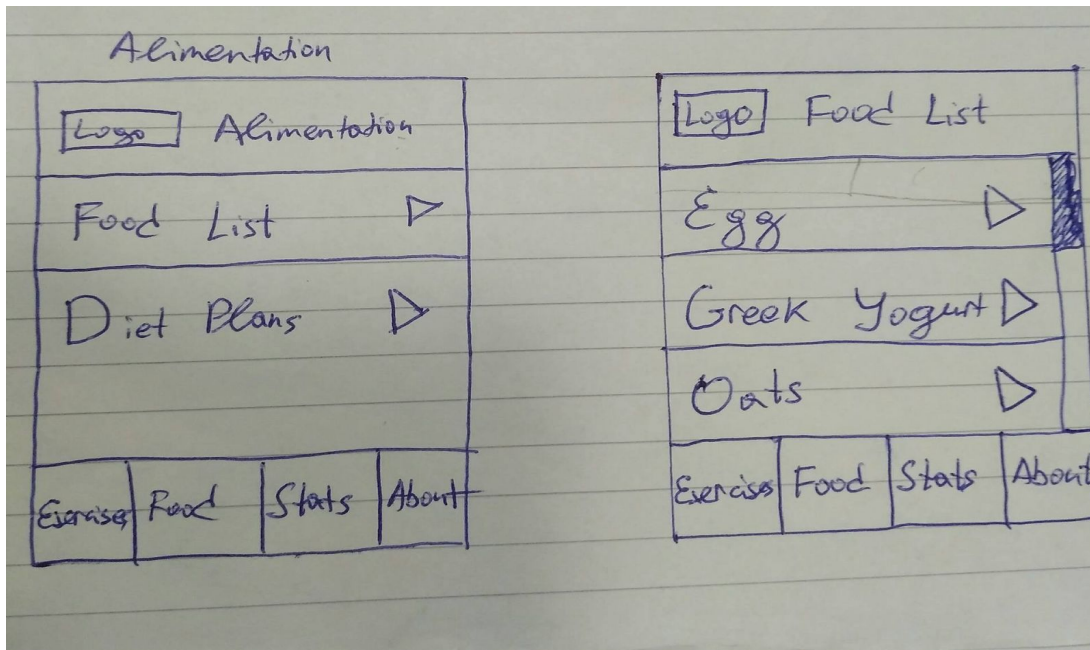 Alimentation
Logo Alimentation
Food List
Diet Plans
Exercises Food Stats About
Logo Food List
Egg
Greek Yogurt
Oats
Exercises Food Stats About